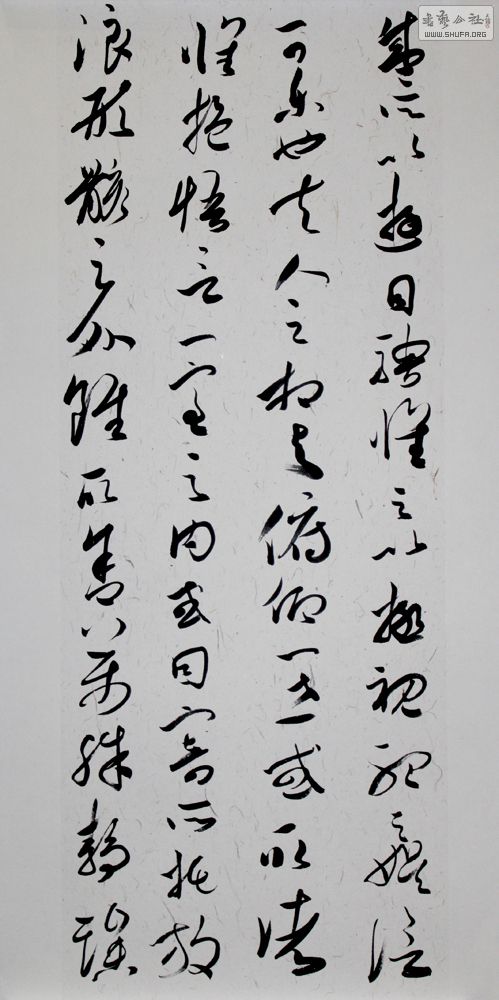 盛所以遊目騁懷足以極視聽之娛信
可樂也夫人之相與俯仰一世或取諸
懷抱悟言一室之内或因寄所托放
浪形骸之外雖取舍萬殊靜躁
書藝公社
WWW.SHUFA.ORG